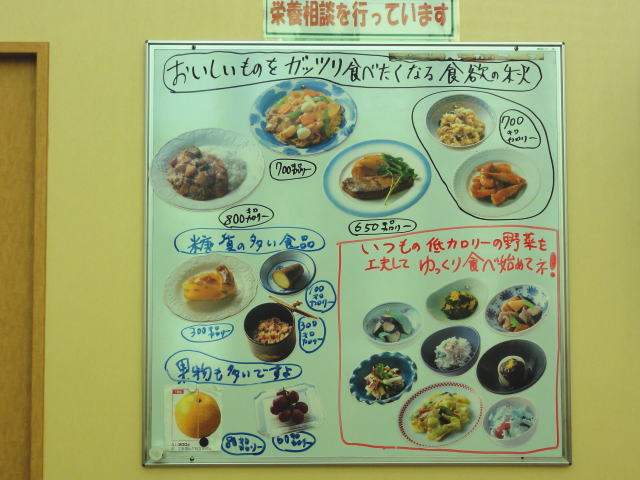 栄養相談を行っています
おいしいものをガッツリ食べたくなる食欲の秋
700キロカロリー
700
キロ
カロリー
800キロカロリー
650キロカロリー
糖質の多い食品
300キロカロリー
100
キロ
カロリー
300
キロ
カロリー
いつもの低カロリーの野菜を
工夫してゆっくり食べ始めてネ!
果物も多いですよ
80キロカロリー
160キロカロリー